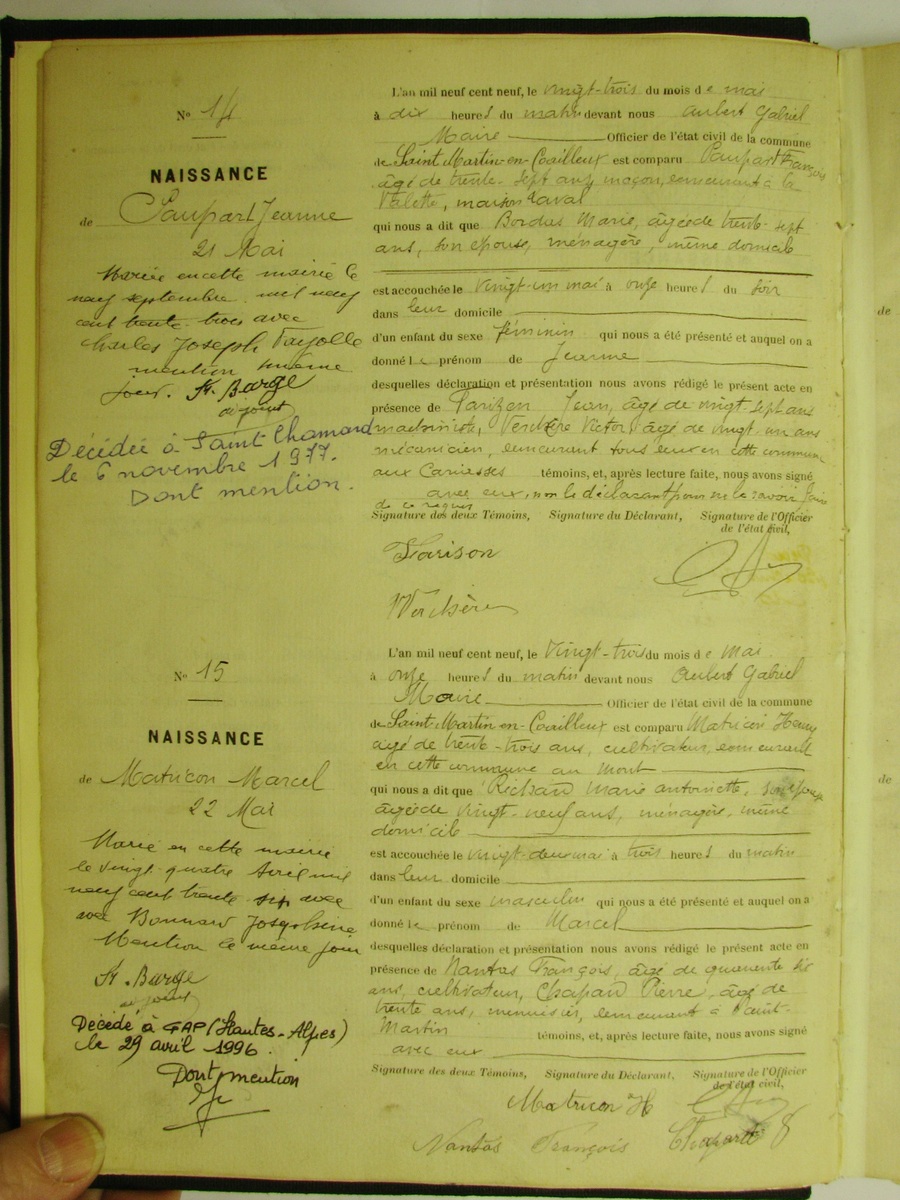 N° 14
NAISSANCE
de Paupart Jeanne
21 Mai
Mariée en cette mairie le
neuf septembre mil neuf
cent trente trois avec
Charles Joseph Fayolle
mention même
jour. St. Barge
adjoint
Décédée à Saint Chamond
le 6 novembre 1977.
Dont mention.
L'an mil neuf cent neuf, le vingt-trois du mois de mai
à dix heures du matin devant nous Aubert Gabriel
Maire Officier de l'état civil de la commune
de Saint Martin-en-Coailleux est comparu Paupart François
âgé de trente-sept ans, maçon, demeurant à la
Valette, maison Laval
qui nous a dit que Bordas Marie, âgée de trente-sept
ans, son épouse, ménagère, même domicile
est accouchée le vingt-un mai à onze heures du soir
dans leur domicile
d'un enfant du sexe féminin qui nous a été présenté et auquel on a
donné le prénom de Jeanne
desquelles déclaration et présentation nous avons rédigé le présent acte en
présence de Parizon Jean, âgé de vingt sept ans
machiniste, Verchère Victor, âgé de vingt-un ans
mécanicien, demeurant tous deux en cette commune
aux Carriesses témoins, et, après lecture faite, nous avons signé
avec eux, non le déclarant pour ne le savoir faire
de ce requis
Signature des deux Témoins, Signature du Déclarant, Signature de l'Officier
de l'état civil,
Parison
Verchère
N° 15
NAISSANCE
de Matricon Marcel
22 Mai
Marié en cette mairie
le vingt quatre Avril mil
neuf cent trente six avec
avec Bonnard Joséphine
Mention le même jour
St. Barge
adjoint
Décédé à GAP (Hautes-Alpes)
le 29 avril 1996.
Dont mention
L'an mil neuf cent neuf, le vingt-trois du mois de mai
à onze heures du matin devant nous Aubert Gabriel
Maire Officier de l'état civil de la commune
de Saint-Martin-en-Coailleux est comparu Matricon Henry
âgé de trente-trois ans, cultivateur, demeurant
en cette commune au Mont
qui nous a dit que Richard Marie Antoinette, son épouse
âgée de vingt-neuf ans, ménagère, même
domicile
est accouchée le vingt-deux mai à trois heures du matin
dans leur domicile
d'un enfant du sexe masculin qui nous a été présenté et auquel on a
donné le prénom de Marcel
desquelles déclaration et présentation nous avons rédigé le présent acte en
présence de Nantas François, âgé de quarante six
ans, cultivateur, Chapard Pierre, âgé de
trente ans, menuisier, demeurant à Saint-
Martin témoins, et, après lecture faite, nous avons signé
avec eux
Signature des deux Témoins, Signature du Déclarant, Signature de l'Officier
de l'état civil,
Matricon H
Nantas François Chapard
de
de